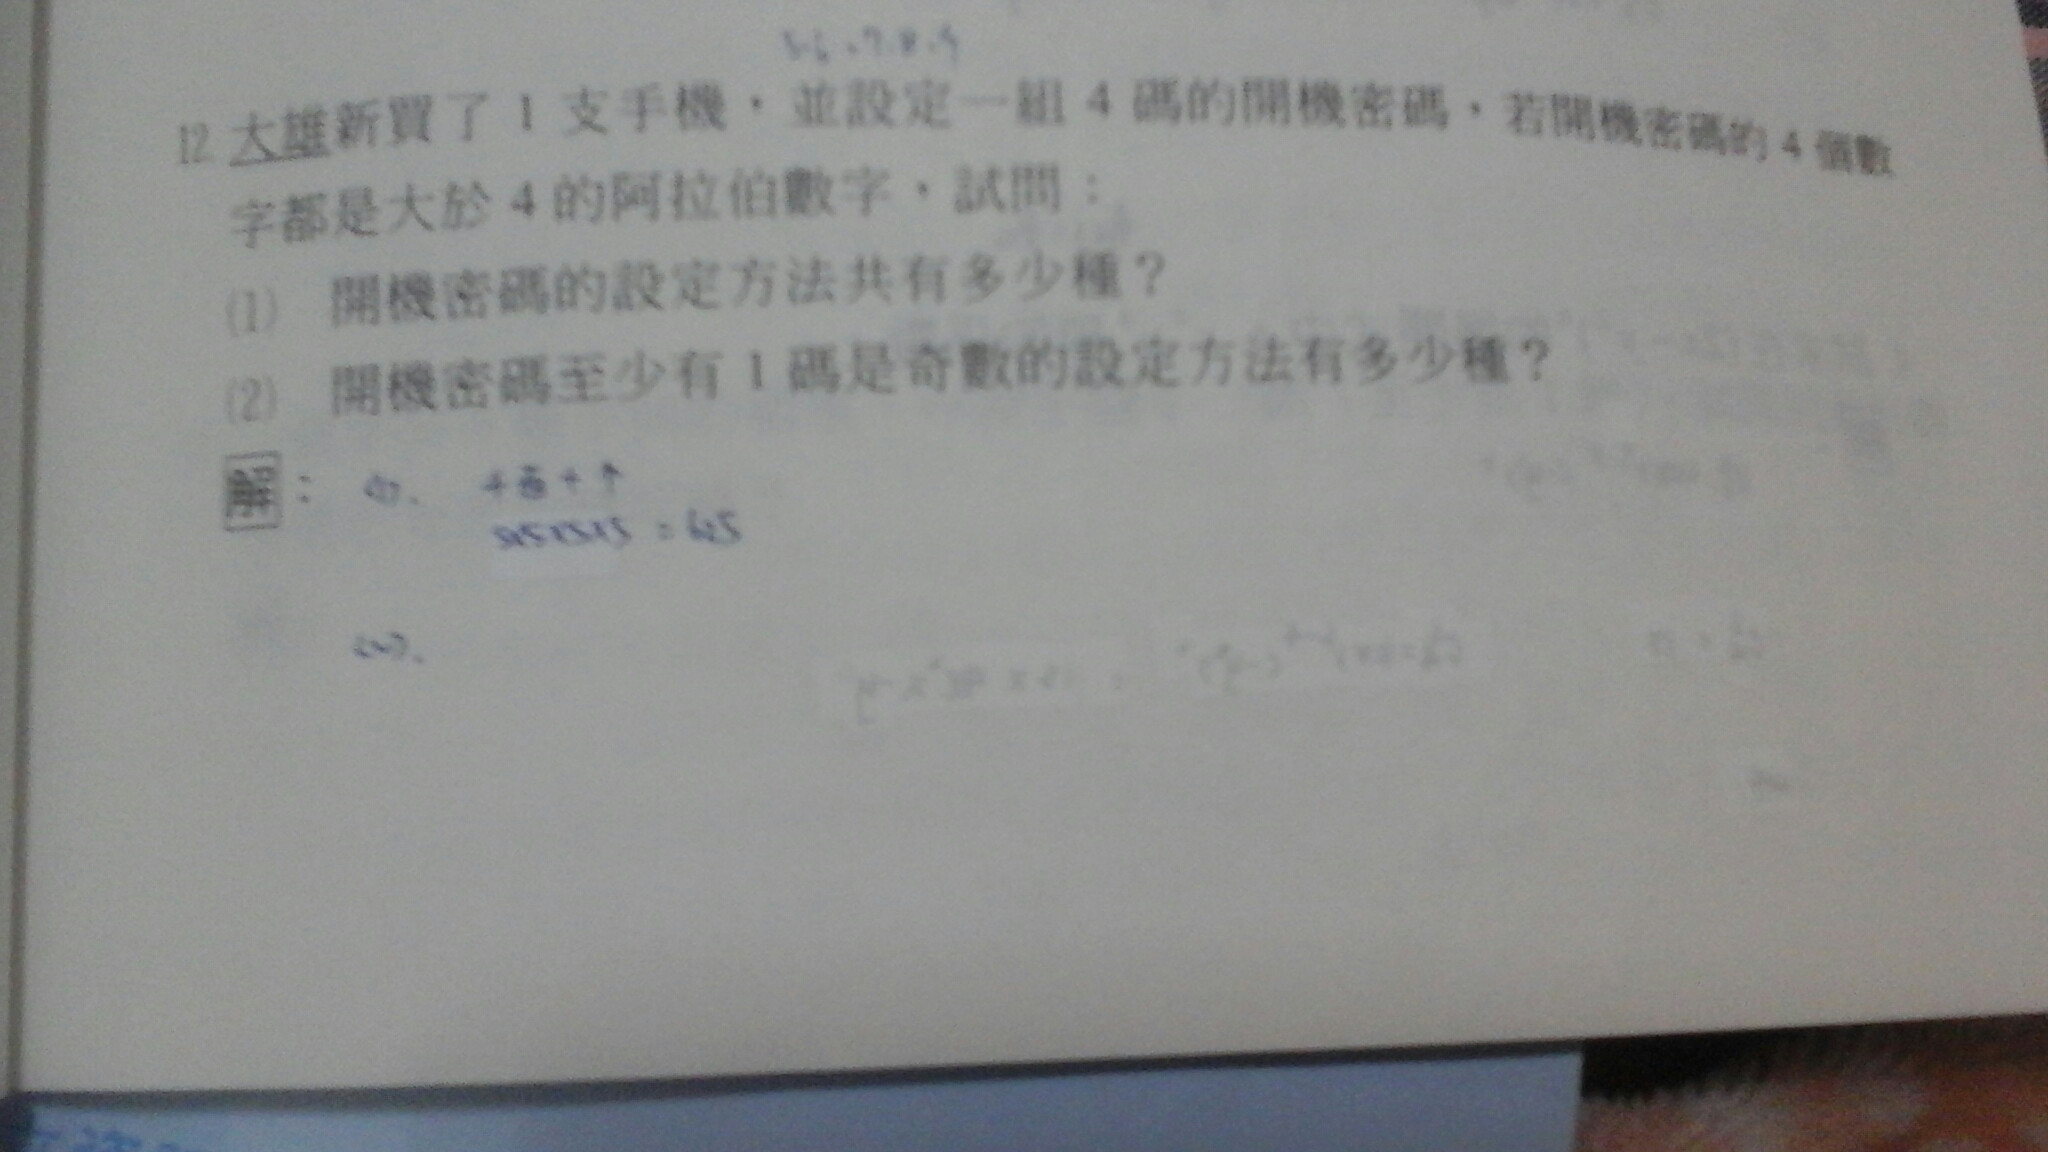 5.6.7.8.9
12 大雄新買了 1 支手機，並設定一組 4 碼的開機密碼，若開機密碼的 4 個數
字都是大於 4 的阿拉伯數字，試問：
(1) 開機密碼的設定方法共有多少種？
(2) 開機密碼至少有 1 碼是奇數的設定方法有多少種？
解： (1).
5×5×5×5 = 625
(2).